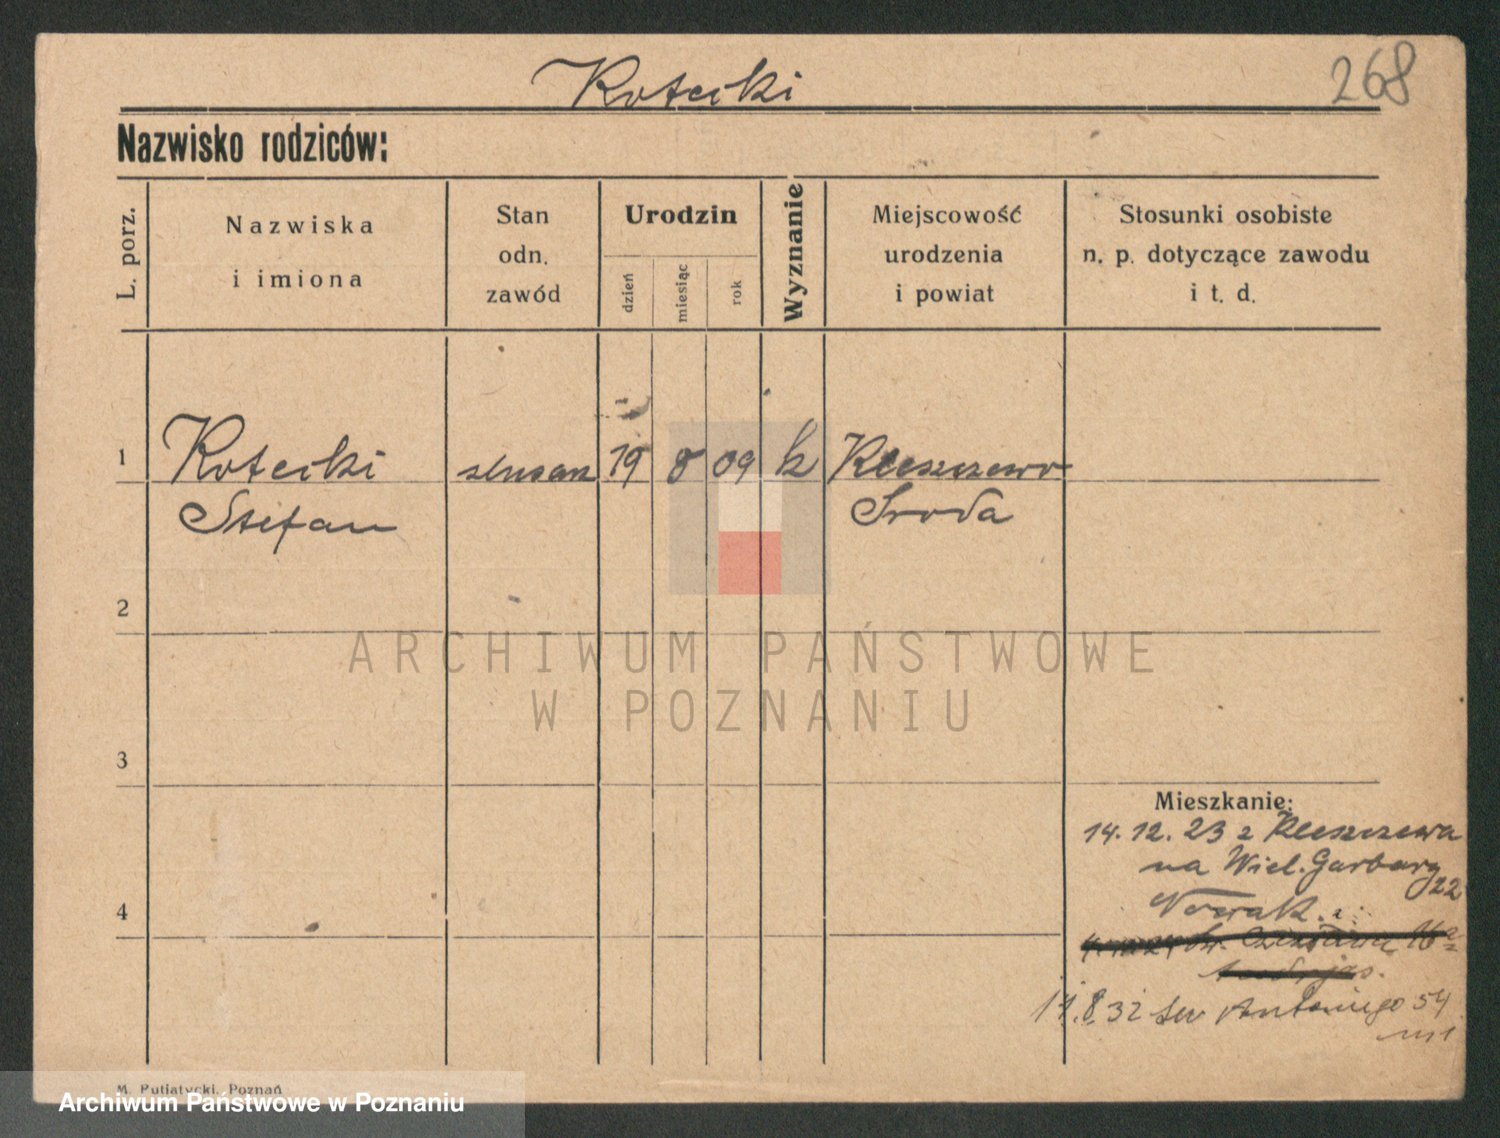 Kotecki
268
Nazwisko rodziców:
L. porz.
Nazwiska
i imiona
Stan
odn.
zawód
Urodzin
dzień
miesiąc
rok
Wyznanie
Miejscowość
urodzenia
i powiat
Stosunki osobiste
n. p. dotyczące zawodu
i t. d.
1 Kotecki ślusarz 19 8 09 k Kleszczewo
Stefan Środa
2
ARCHIWUM PAŃSTWOWE
W POZNANIU
3
Mieszkanie:
14. 12. 23 z Kleszczewa
na Wiel. Garbary
22
Nowak.
4
Św. Czesława 16
11. 8. 32 św Antoniego 54
m 1
M. Putiatycki, Poznań
Archiwum Państwowe w Poznaniu